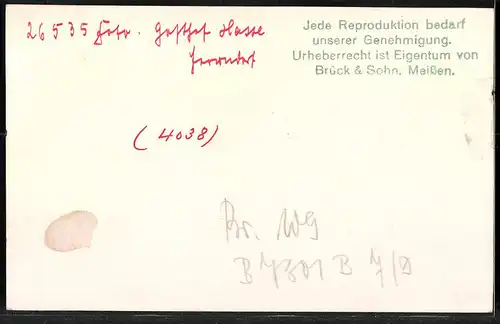 26535 Foto. Gasthof Hasse
Jede Reproduktion bedarf
unserer Genehmigung.
Urheberrecht ist Eigentum von
Brück & Sohn, Meißen.
(4038)
Br. WG
B 4301 B 7/D